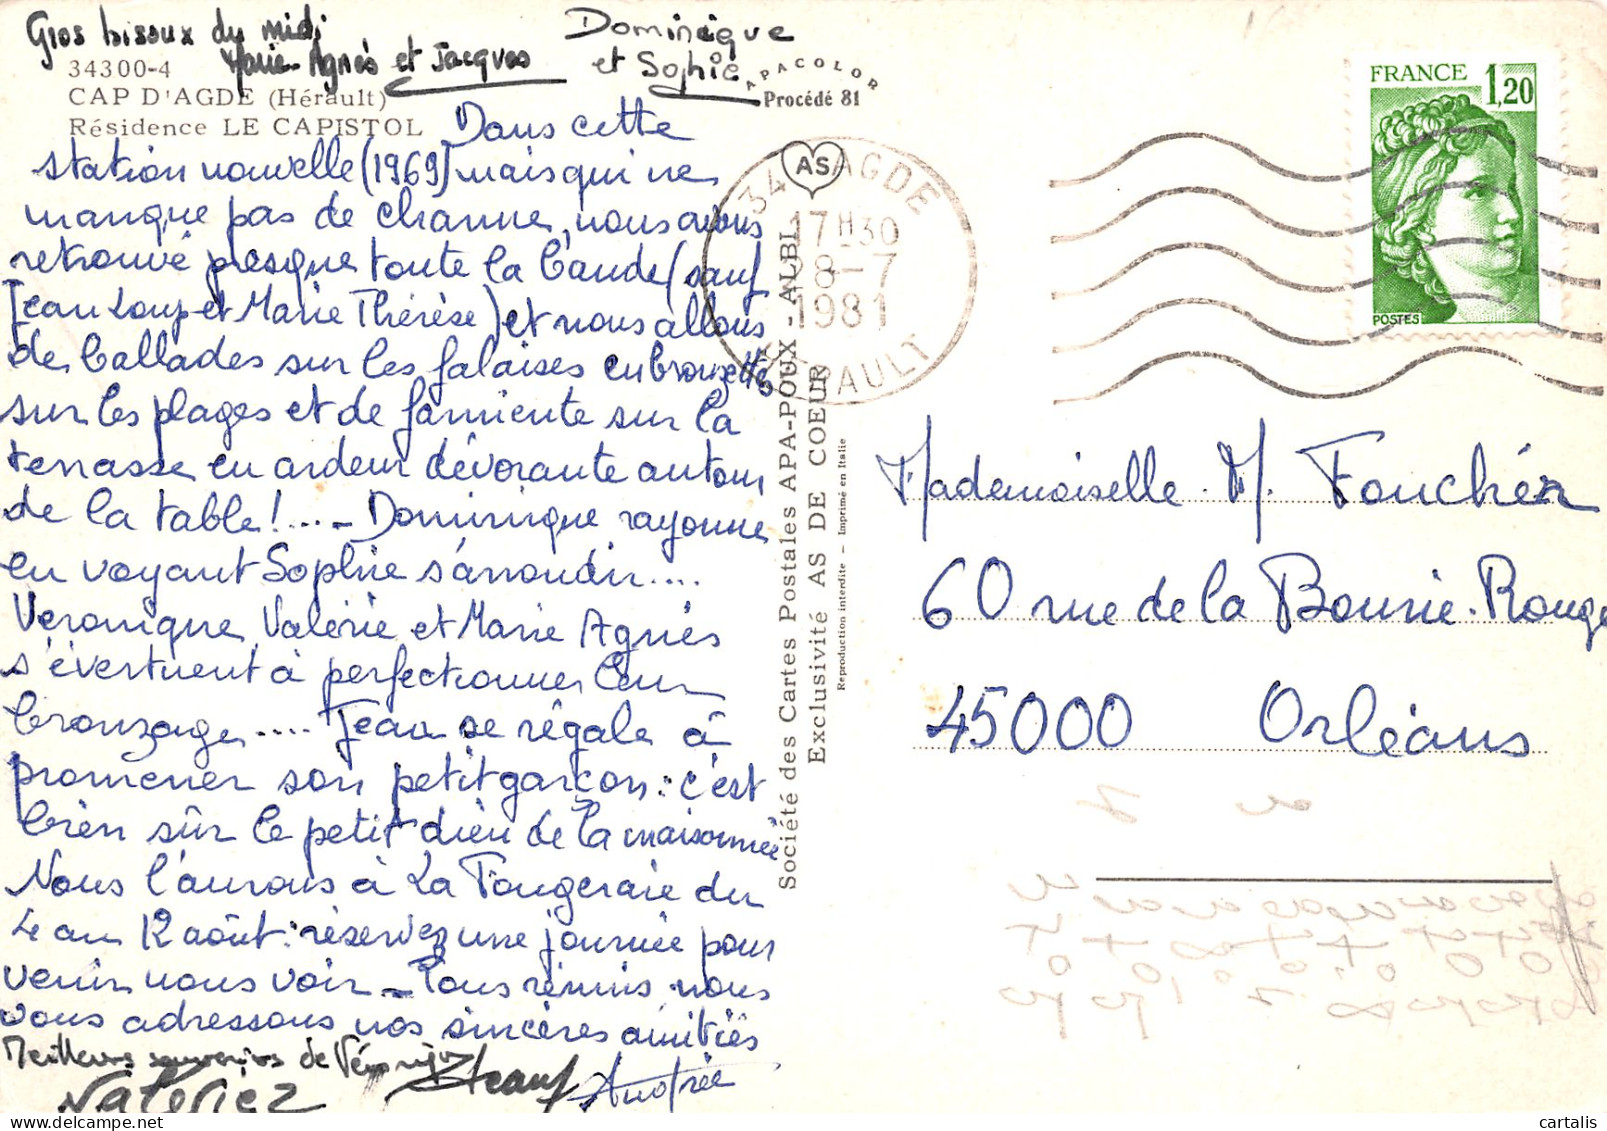 Gros bisoux du midi
Marie-Agnès et Jacques
Dominique
et Sophie
34300-4
CAP D'AGDE (Hérault)
Résidence LE CAPISTOL
APACOLOR
Procédé 81
Dans cette
station nouvelle (1969) mais qui ne
manque pas de charme, nous avons
retrouvé presque toute la bande (sauf
Jean Loup et Marie Thérèse) et nous allons
de ballades sur les falaises en bronzette
sur les plages et de farniente sur la
terrasse en ardeur dévorante autour
de la table ! .... - Dominique rayonne
en voyant Sophie s'arrondir ....
Veronique, Valérie et Marie Agnès
s'évertuent à perfectionner leur
bronzage .... Jean se régale à
promener son petit garçon : c'est
bien sûr le petit dieu de la maisonnée
Nous l'aurons à La Fougeraie du
4 au 12 août : réservez une journée pour
venir nous voir - Tous réunis nous
vous adressons nos sincères amitiés
Meilleurs souvenirs de Véronique
Valérie
Jean
Andrée
Société des Cartes Postales APA-POUX - ALBI
Exclusivité AS DE COEUR
Reproduction interdite - Imprimé en Italie
AS
34 AGDE
17H30
28-7
1981
HERAULT
FRANCE 1,20
POSTES
Mademoiselle M. Fouchér
60 rue de la Bourie-Rouge
45000 Orléans
cartalis
delcampe.net